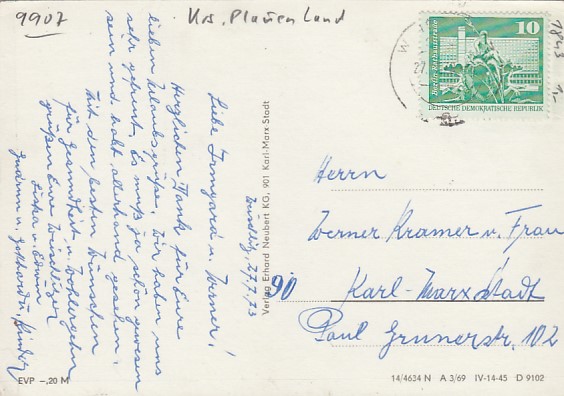 9907
Krs. Plauen Land
1843
1,-
10
Berlin, Rathausstraße
DEUTSCHE DEMOKRATISCHE REPUBLIK
27.7.73
Liebe Irmgard u. Werner!
Herzlichen Dank für Eure
lieben Urlaubsgrüße. Wir haben uns
sehr gefreut. Es muß ja schön gewesen
sein und habt allerhand gesehen.
Mit den besten Wünschen
für Gesundheit u. Wohlergehn
grüßen Eure
u. Edwin
Gudrun u. Gotthard u. Kinder
Verlag Erhard Neubert KG, 901 Karl-Marx-Stadt
Herrn
Werner Kramer u. Frau
90 Karl-Marx-Stadt
Paul Grunerstr. 102
EVP -,20 M
14/4634 N A 3/69 IV-14-45 D 9102